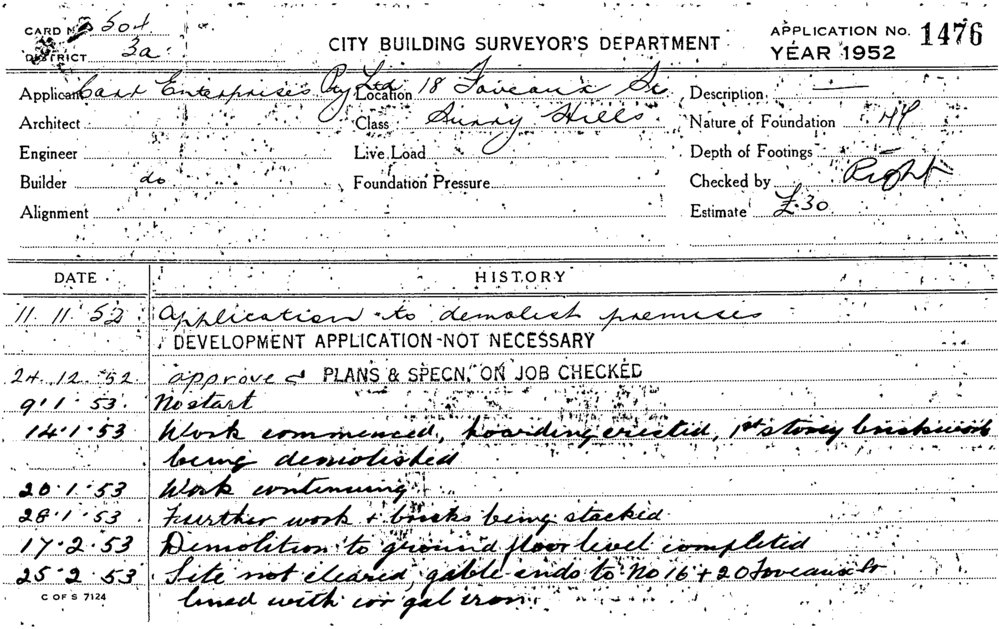 CARD No 504
DISTRICT 3a
CITY BUILDING SURVEYOR'S DEPARTMENT
APPLICATION No. 1476
YEAR 1952
Applicant Carr Enterprises Pty Ltd
Location 18 Foveaux St
Description —
Architect
Class Surry Hills
Nature of Foundation
Engineer
Live Load
Depth of Footings —
Builder do
Foundation Pressure
Checked by
Alignment
Estimate £.30
DATE HISTORY
11. 11. 52 Application to demolish premises
DEVELOPMENT APPLICATION - NOT NECESSARY
24. 12. 52 approved PLANS & SPECN. ON JOB CHECKED
9.1.53. No start
14.1.53 Work commenced, hoarding erected, 1st storey brickwork
being demolished
20.1.53 Work continuing
28.1.53 Further work + bricks being stacked
17.2.53 Demolition to ground floor level completed
25.2.53 Site not cleared, gable ends to No 16 + 20 Foveaux St
lined with cor gal iron
C OF S 7124